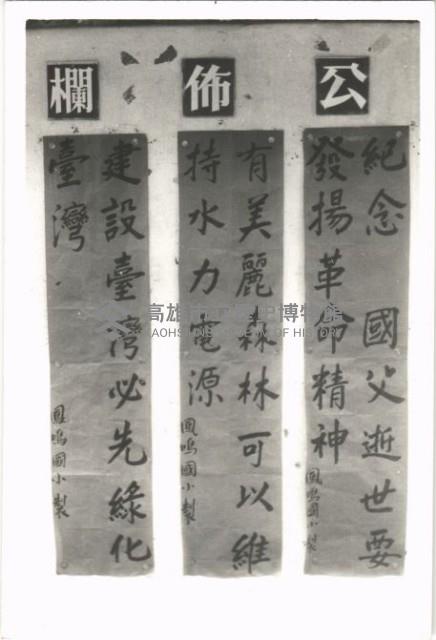 公佈欄
紀念 國父逝世要
發揚革命精神
鳳鳴國小製
有美麗森林可以維
持水力電源
鳳鳴國小製
建設臺灣必先綠化
臺灣
鳳鳴國小製
高雄市立歷史博物館
KAOHSIUNG MUSEUM OF HISTORY